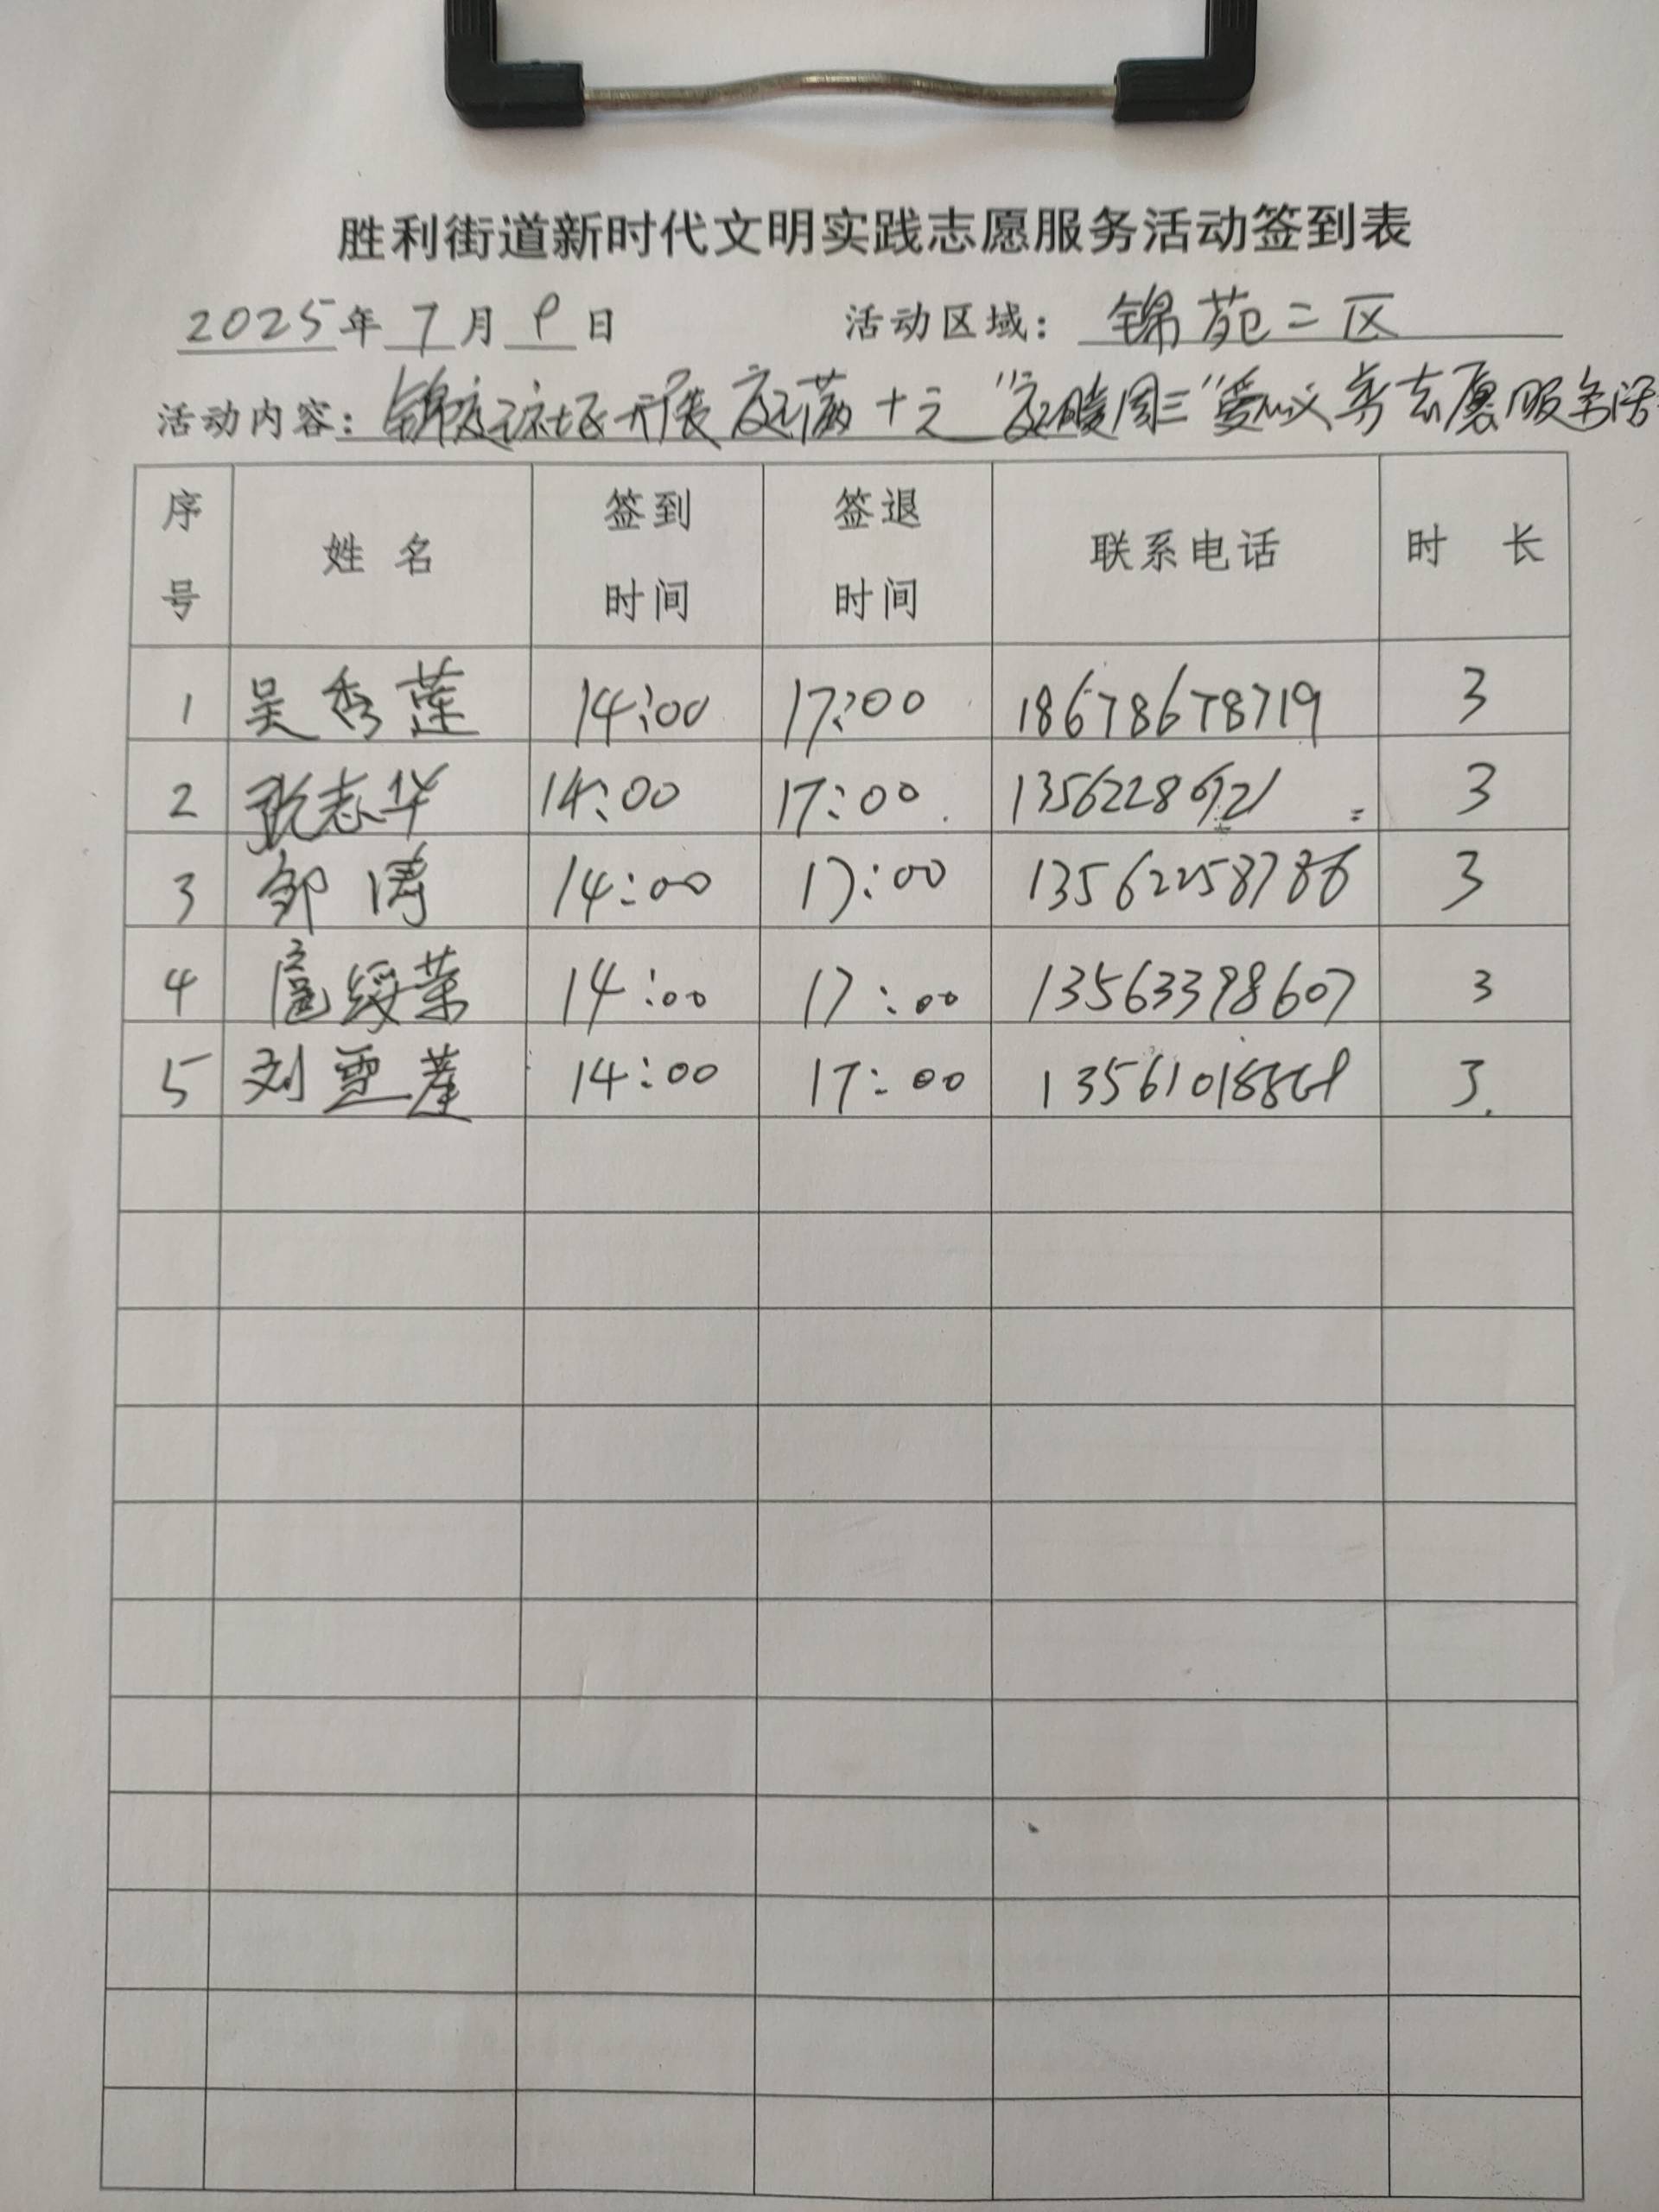 胜利街道新时代文明实践志愿服务活动签到表
2025年7月9日 活动区域：锦苑二区
活动内容：锦庭社区开展庭满十元"庭暖周三"爱心义剪志愿服务活
序号 姓名 签到时间 签退时间 联系电话 时长
1 吴秀莲 14:00 17:00 18678678719 3
2 张志华 14:00 17:00 3
3 邹涛 14:00 17:00 13562258786 3
4 14:00 17:00 13563398607 3
5 刘雪 14:00 17:00 3